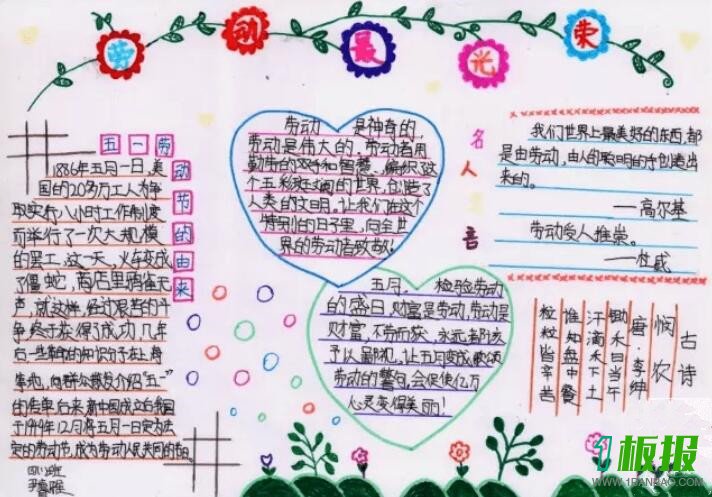 劳动最光荣
五一劳动节的由来
1886年五月一日,美
国的20多万工人为争
取实行八小时工作制度
而举行了一次大规模
的罢工,这一天,火车变成
了僵蛇,商店里鸦雀无
声,就这样,经过艰苦的斗
争终于获得了成功,几年
后一些革命的知识分子在上海
等地,向群众散发介绍“五一”
的传单,后来新中国成立后我国
于1949年12月将五月一日定为法
定的劳动节,成为劳动人民共同的节日。
劳动 是神奇的,
劳动是伟大的,劳动者用
勤劳的双手和智慧,编织了这
个五彩斑斓的世界,创造了
人类的文明。让我们在这个
特别的日子里,向全世
界的劳动者致敬!
五月, 检验劳动
的盛日,财富是劳动,劳动是
财富,不劳而获,永远都该
予以鄙视,让五月变成歌颂
劳动的警句,会促使亿万
心灵变得美丽!
名人名言
我们世界上最美好的东西,都
是由劳动,由人的聪明的手创造出
来的。
——高尔基
劳动受人推崇。
——杜威
古诗
悯农
唐·李绅
锄禾日当午
汗滴禾下土
谁知盘中餐
粒粒皆辛苦
板报
WWW.1BANBAO.COM